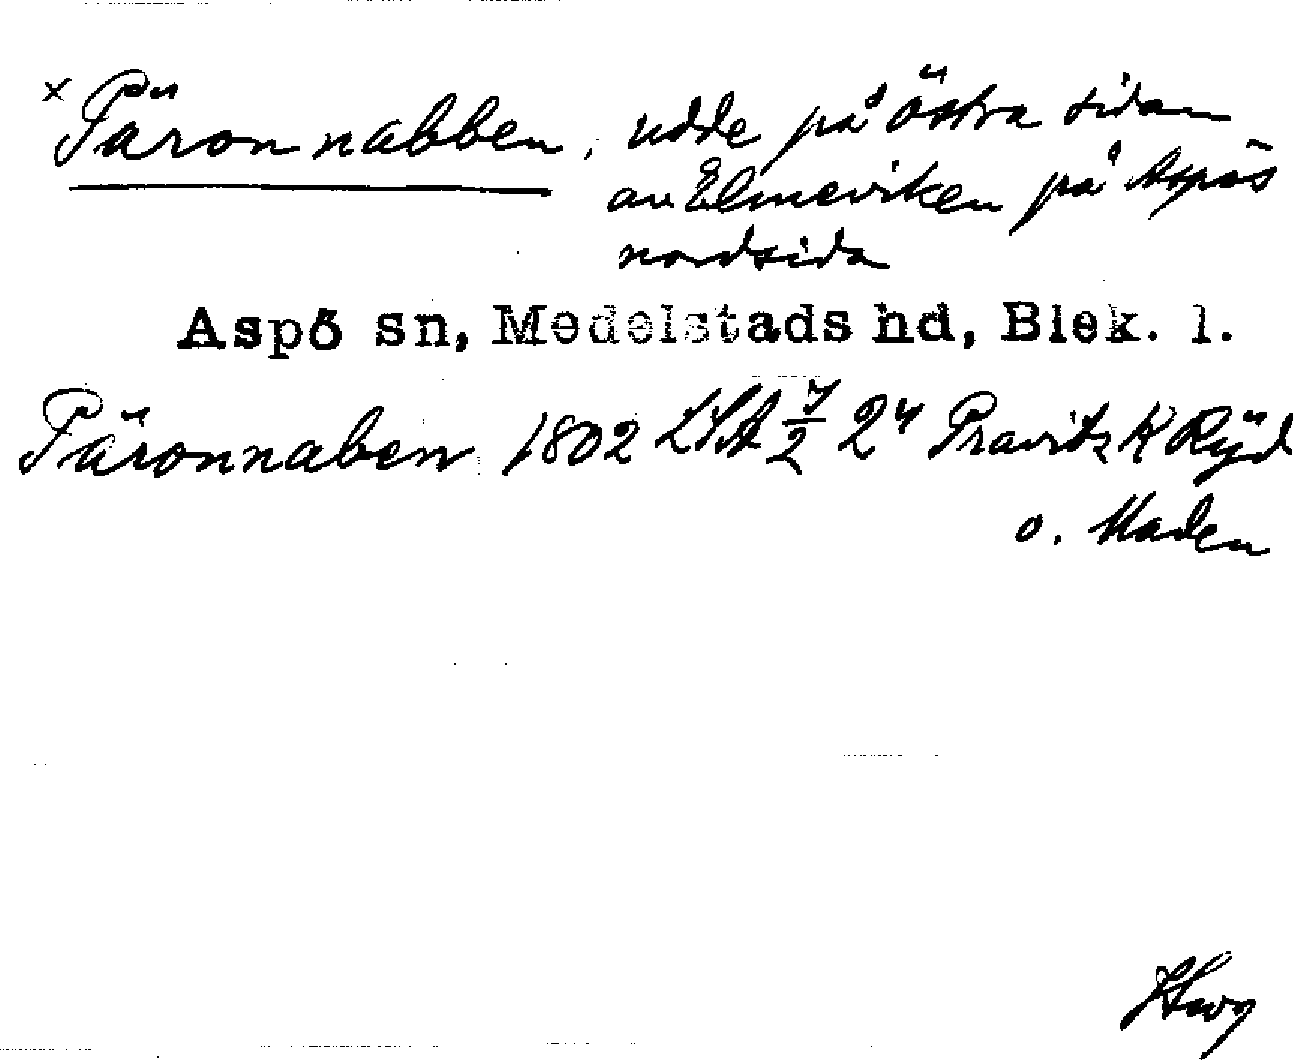 x Päronnabben, udde på östra sidan
av Elmeviken på Aspös
nordsida
Aspö sn, Medelstads hd, Blek. l.
Päronnaben 1802 LSA 7/2 2y Pravitz K Ryd
o. Maden